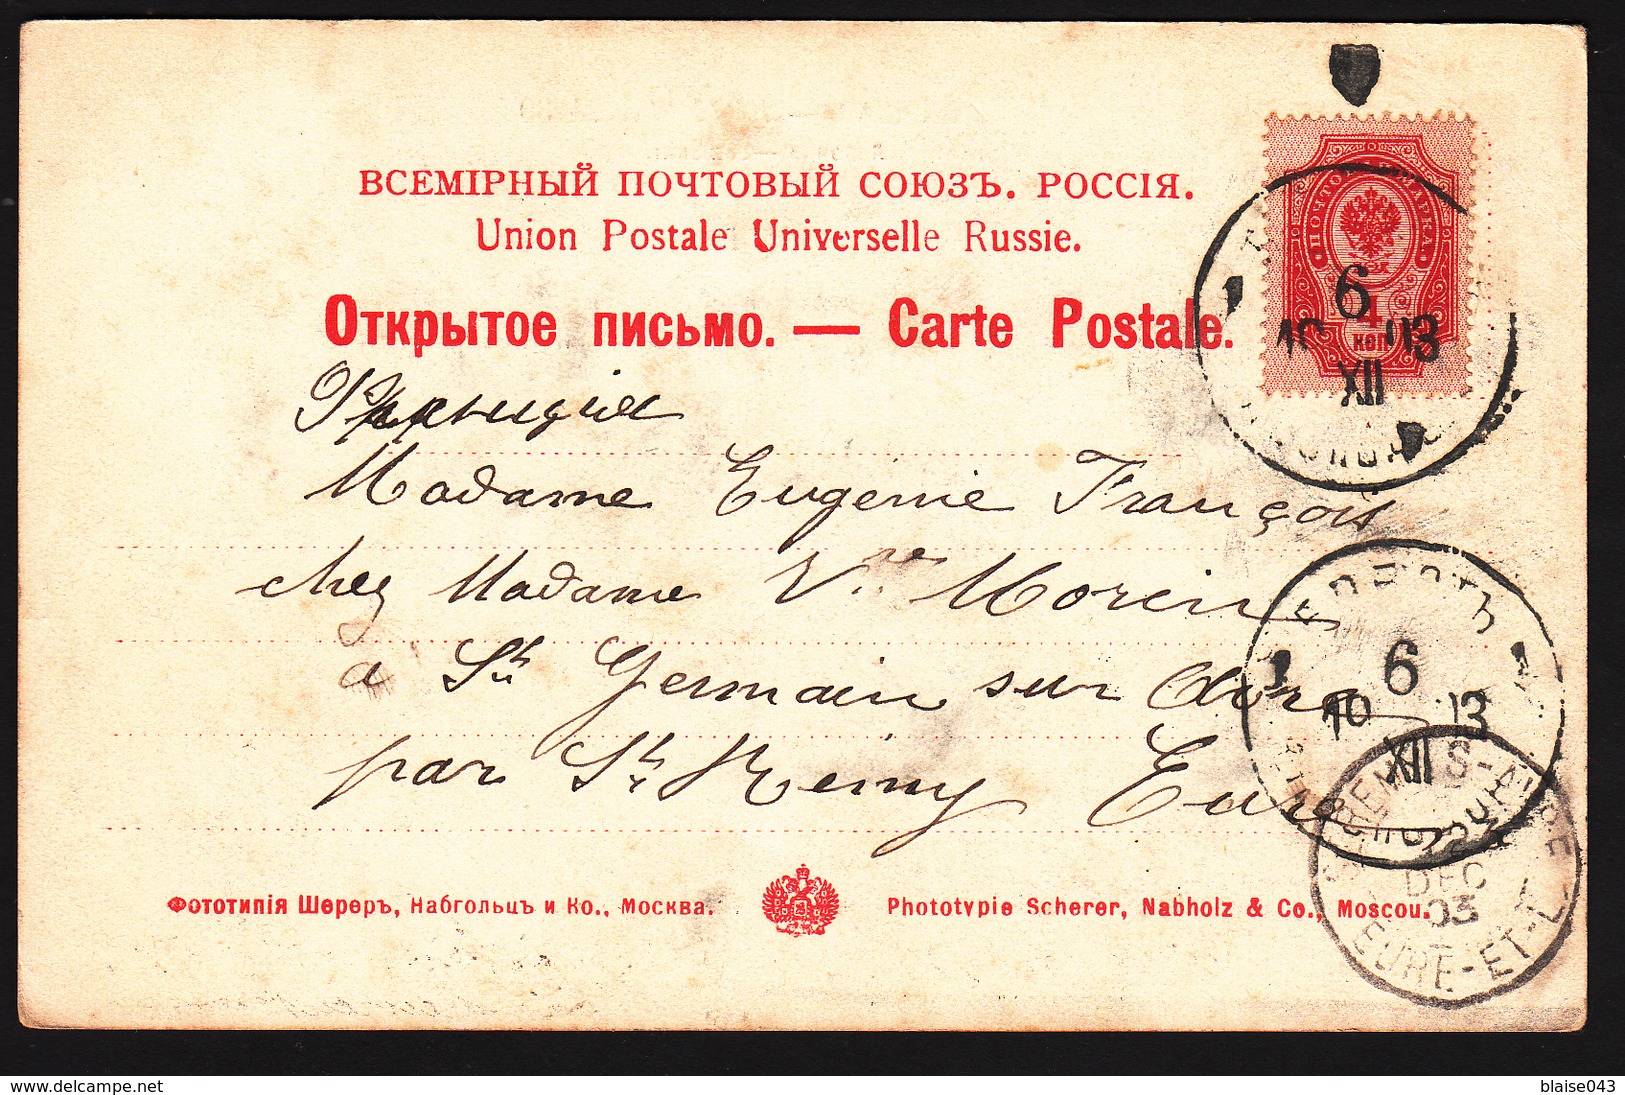 ВСЕМІРНЫЙ ПОЧТОВЫЙ СОЮЗЪ. РОССІЯ.
Union Postale Universelle Russie.
Открытое письмо. — Carte Postale.
ПОЧТОВАЯ МАРКА
4
КОП
6
10 13
XII
Франція
Madame Eugenie François
chez Madame Vve Morin
a St Germain sur Avre
par St Remy Eure
6
10 13
XII
ST REMY-S-AVRE
DEC
03
EURE-ET-L
Фототипія Шереръ, Набгольцъ и Ко., Москва.
Phototypie Scherer, Nabholz & Co., Moscou.
delcampe.net
blaise043